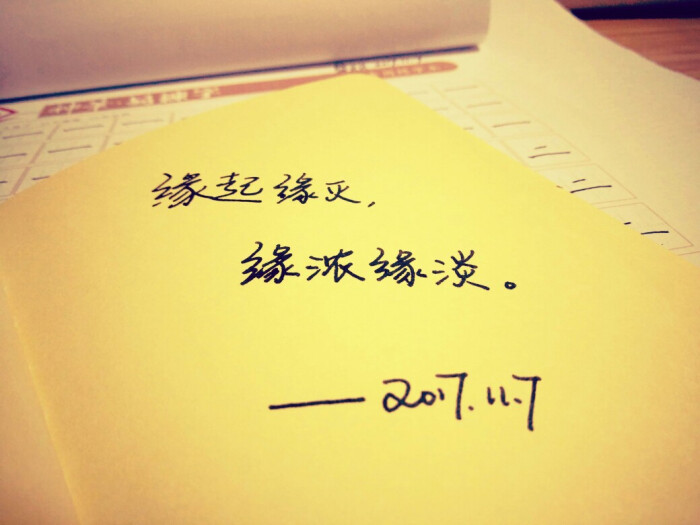 缘起缘灭,
缘浓缘淡。
——2017.11.7